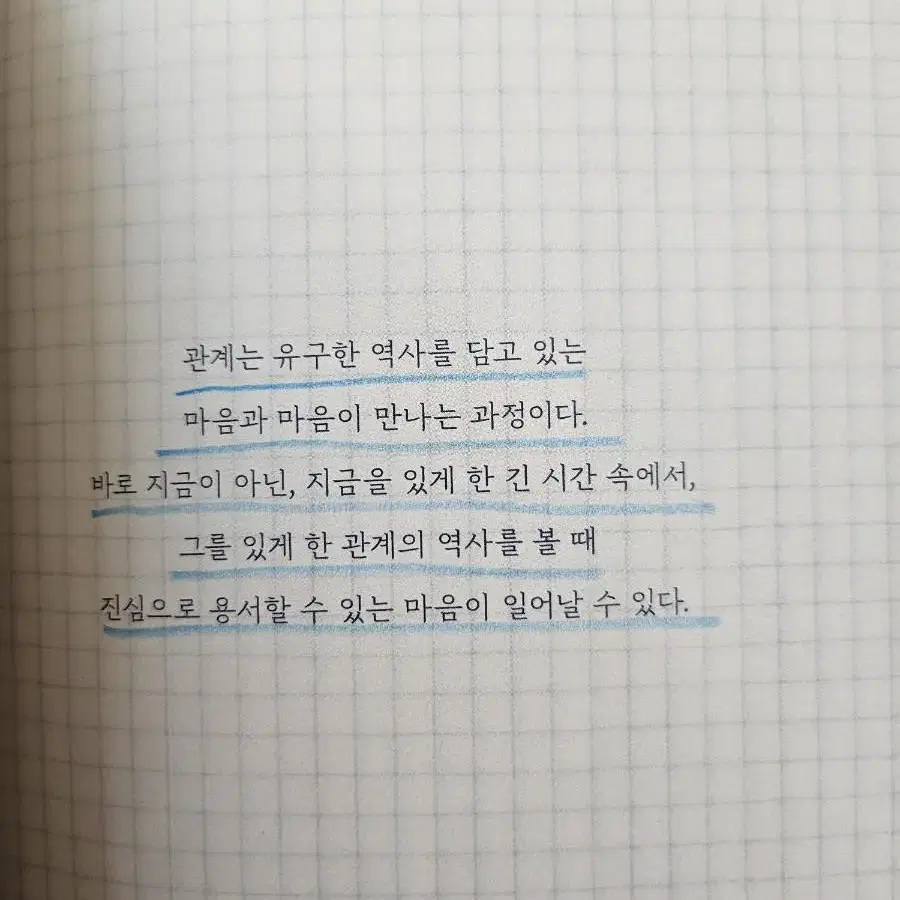 관계는 유구한 역사를 담고 있는
마음과 마음이 만나는 과정이다.
바로 지금이 아닌, 지금을 있게 한 긴 시간 속에서,
그를 있게 한 관계의 역사를 볼 때
진심으로 용서할 수 있는 마음이 일어날 수 있다.